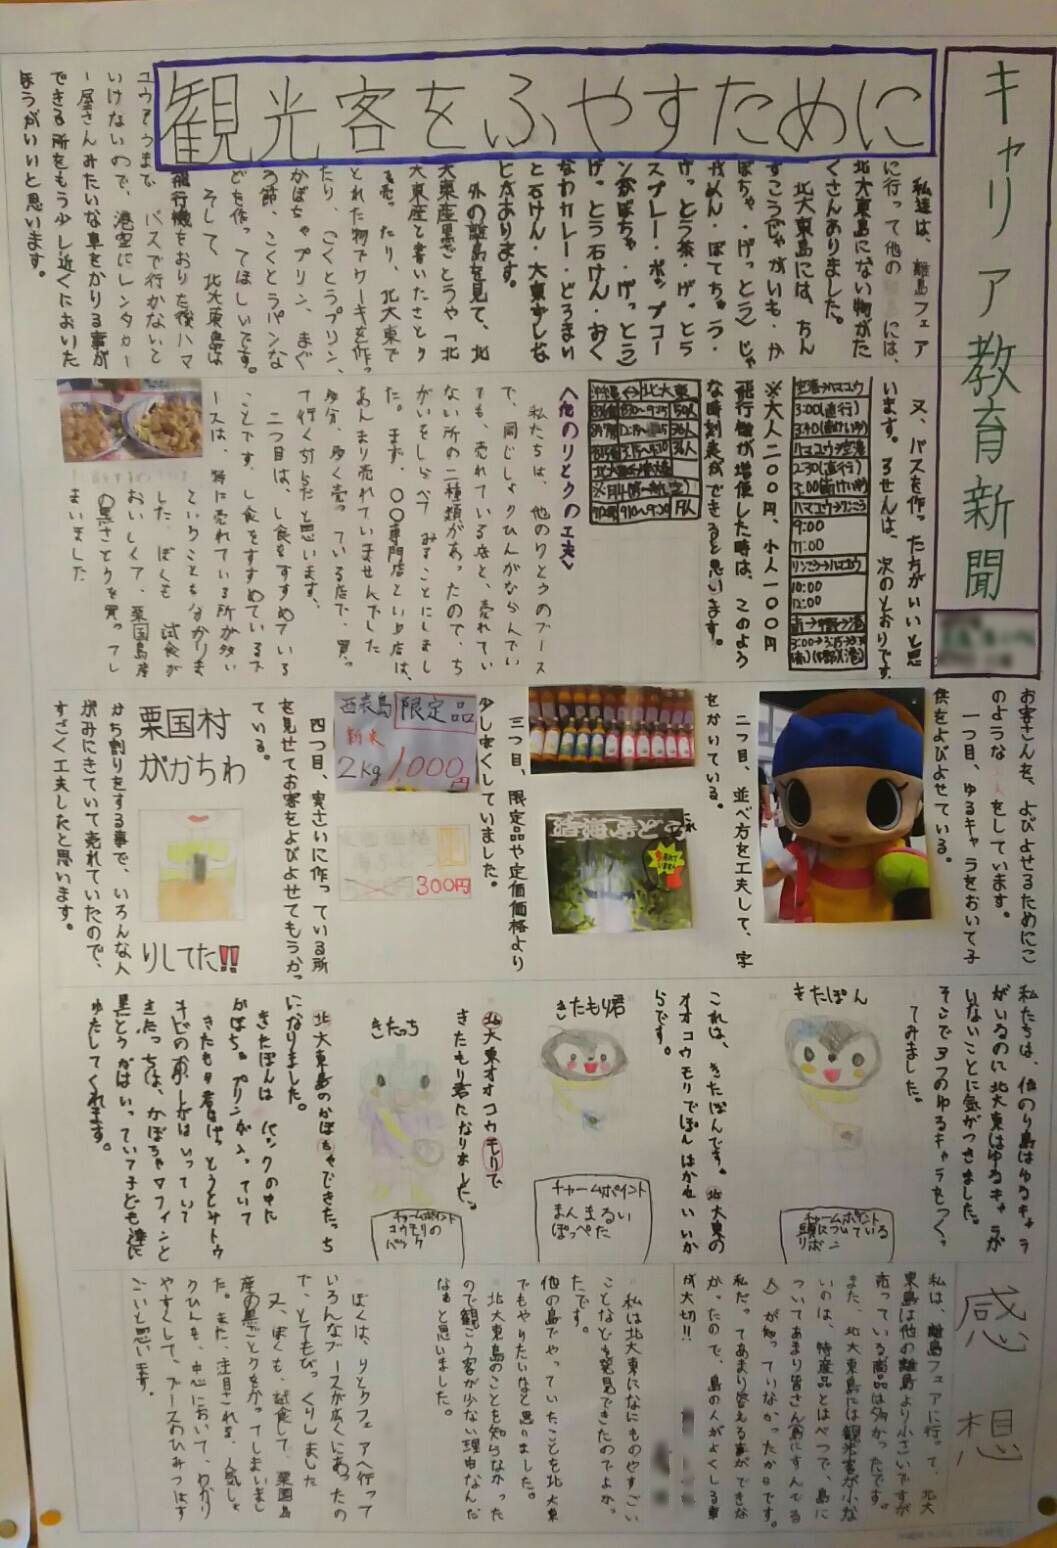 キャリア教育新聞
観光客をふやすために
私達は、離島フェア
に行って他の
には、
北大東島にない物がた
くさんありました。
北大東島には、ちん
すこうじゃがいも・か
ぼちゃ・げっとう)じゃ
がめん・ぽてちゅう・
げっとう茶・げっとう
スプレー・ポップコー
ン(かぼちゃ・げっとう)
げっとう石けん・おく
なわカレー・どろまい
と石けん・大東ずしな
どがあります。
外の離島を見て、北
大東産黒ごとうや「北
大東産と書いたさとう
を売ったり、北大東で
とれた物でケーキを作っ
たり、「こくとうプリン、
かぼちゃプリン、まぐ
ろ節、こくとうパンな
どを作ってほしいです。
そして、北大東島は
飛行機をおりた後ハマ
ユウ
バスで行かないと
いけないので、港空にレンタカー
屋さんみたいな車をかりる事が
できる所をもう少し近くにおいた
ほうがいいと思います。
又、バスを作った方がいいと思
います。ろせんは、次のとおりです。
空港→ハマユウ
3:00(直行)
ハマユウ→空港
2:30(直行)
9:00
11:00
10:00
12:00
※大人二〇〇円、小人一〇〇円
飛行機が増便した時は、このよう
な時刻表ができると思います。
沖縄⇔北大東
〈他のりとうの工夫〉
私たちは、他のりとうのブース
で、同じしょくひんがならんでい
ても、売れている店と、売れてい
ない所の二種類があったので、ち
がいをしらべてみることにしまし
た。まず、〇〇専門店というお店は、
あんまり売れていませんでした
多分、多く売っている店で、買っ
て行く
だと思います。
二つ目は、し食をすすめている
ことです。し食をすすめているブ
ースは、特に売れている所が多い
ということもわかりま
した。ぼくも、試食が
おいしくて、粟国島産
の黒さとうを買ってし
まいました
お客さんを、よびよせるためにこ
のような
をしています。
一つ目、ゆるキャラをおいて子
供をよびよせている。
二つ目、並べ方を工夫して、字
をかいている。
三つ目、限定品や定価価格より
少し安くしていました。
西表島
限定品
新米
2kg 1,000円
300円
四つ目、実さいに作っている所
を見せてお客をよびよせてもうかっ
ている。
粟国村
がかちわ
りしてた!!
かち割りをする事で、いろんな人
がみにきていて売れていたので、
すごく工夫したと思います。
私たちは、他のり島はゆるキャラ
がいるのに北大東はゆるキャラが
いないことに気がつきました。
そこで3つのゆるキャラをつくっ
てみました。
きたぽん
チャームポイント
頭についている
リボン
これは、きたぽんです。北大東の
オオコウモリでぽんはかわいいか
らです。
きたもり君
チャームポイント
まんまるい
ほっぺた
北大東オオコウモリで
きたもり君になりました。
きたっち
チャームポイント
コウモリの
バック
北大東島のかぼちゃできたっち
になりました。
きたぽんは バックの中に
かぼちゃプリンが入っていて
きたもり君はげっとうとサトウ
キビの
がはいっていて
きたっちは、かぼちゃマフィンと
黒とうがはいっていて子ども達に
わたしてくれます。
感想
私は、離島フェアに行って、北大
東島は他の離島より小さいですが
売っている商品は多かったです。
また、北大東島には観光客が少な
いのは、特産品とはべつで、島に
ついてあまり皆さん(島にすんでる
人)が知っていなかったからです。
私だってあまり答える事ができな
かったので、島の人がよくしる事
が大切!!
私は北大東になにものやすごい
ことなども発見できたのでよかっ
たです。
他の島でやっていたことを北大東
でもやりたいなと思いました。
北大東島のことを知らなかった
ので観こう客が少ない理由なんだ
なぁと思いました。
ぼくは、りとうフェアへ行って
いろんなブースが広くにあったの
で、とてもびっくりしました
又、ぼくも、試食して、粟国島
産の黒ごとうをかってしまいまし
た。また、注目される、人気しょ
くひんを、中心において、わかり
やすくして、ブースのひみつはす
ごいと思います。